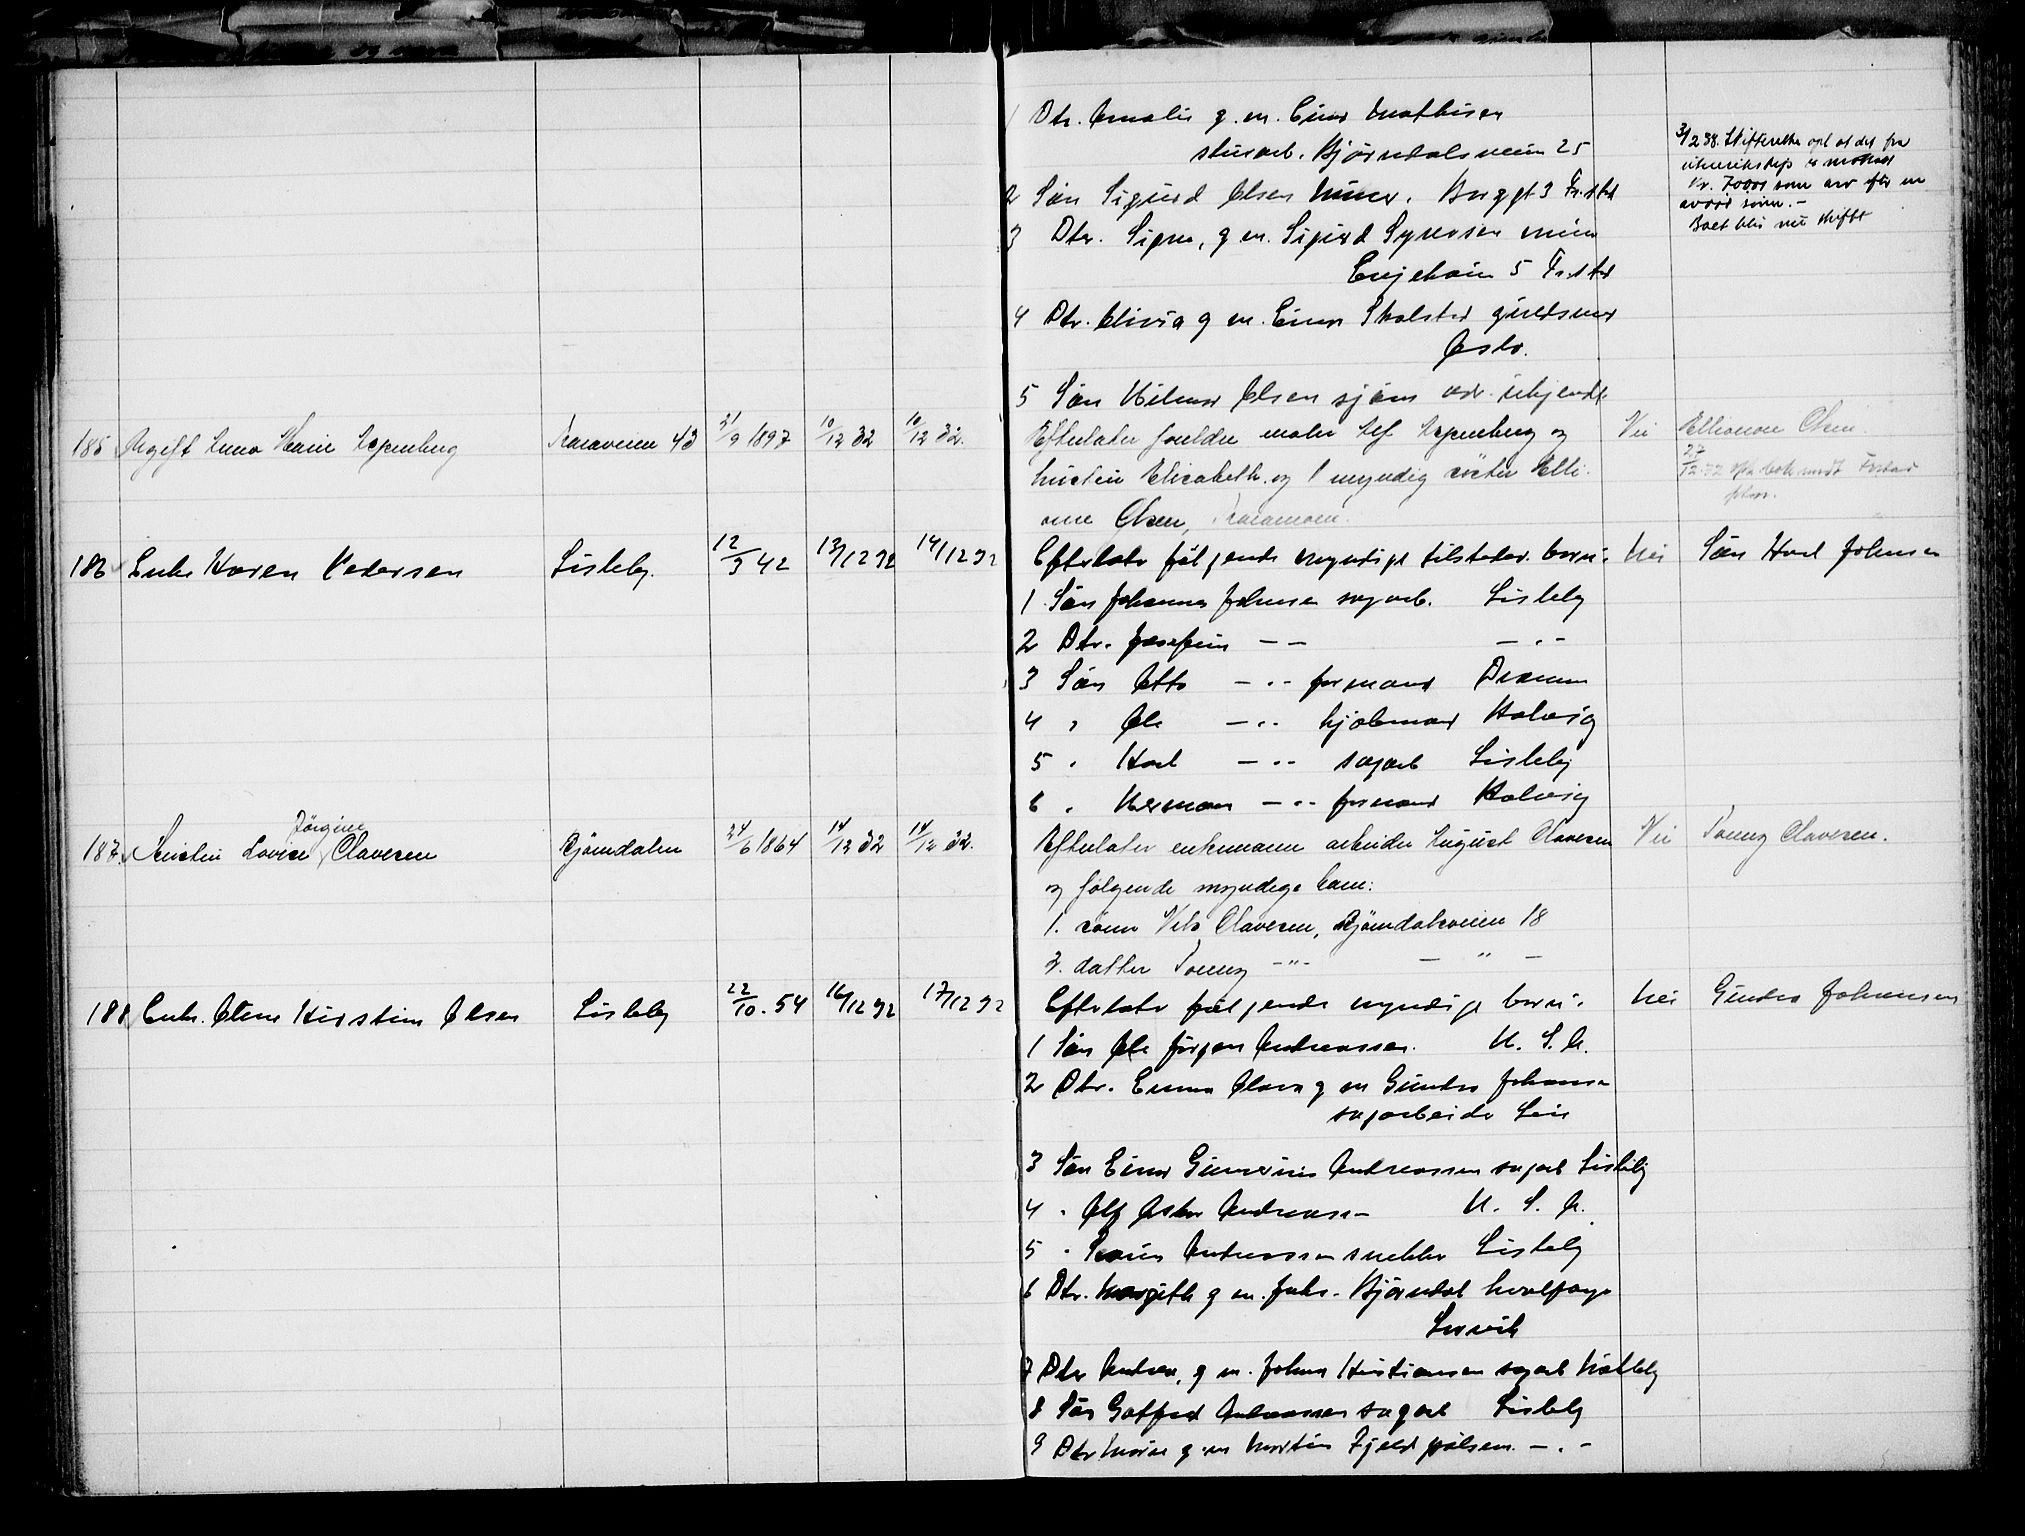 1 Dtr. Amalie g. m. Einar Mathisen
stuearb. Bjørndalsveien 25
2 Søn Sigurd Olsen murer. Bryggt 3 Fr.stad
3 Dtr. Signe, g m. Sigurd Syversen
5 Fr.stad
4 Dtr. Olivia g m. Einar Skolstad
Oslo.
5 Søn Hilmar Olsen sjøm adr. ukjendt
3/2 38. Skifteretten opl at det fra
er mottatt
kr. 7000 som arv efter en
avdød sønn. -
Boet blir nu skiftet
185 Ugift Anna Marie Espenberg
Traraveien 43
21/9 1897
10/12 32
10/12 32.
Efterlater foreldre maler Espenberg og
hustru Elisabeth og 1 myndig søster Elli-
onore Olsen, Traramoen.
Nei
Ellionore Olsen
27/12-32
186 Enke Karen Pedersen
Lisleby.
12/3 42
13/12 32
14/12 32
Efterlater følgende myndige tilstedev. barn:
Nei
Søn Karl Johnsen
1 Søn Johannes Johnsen sagarb. Lisleby
2 Dtr. Josefine - - - " -
3 Søn Otto - " - formand
4 " Ole - " - Halvsig
5 " Karl - " - sagarb Lisleby
6 " Herman - " - formand Halvsig
187 Hustru Lovise Jørgine Olavesen
Bjørndalen
24/6 1864
14/12 32
14/12 32.
Efterlater enkemann arbeider August Olavesen
og følgende myndige barn:
Nei
Tonny Olavesen.
1. sønn Nils Olavesen, Bjørndalsveien 18
2. datter Tonny - " - - " -
188 Enke Oline Kirstine Olsen
Lisleby
22/10. 54
16/12 32
17/12 32
Efterlater følgende myndige barn:
Nei
Gunder Johansen
1 Søn Ole Jørgen Andreassen. U. S. A.
2 Dtr. Emma Olava g m Gunder Johansen
sagarbeider
3 Søn Einar Andreassen sagarb Lisleby
4 " Alf Oskar Andreassen U. S. A.
5 " Andreassen snekker Lisleby
6 Dtr. Margith g m. Johs. Bjørndal hvalfanger
7 Dtr Andrea, g m. Johan Kristiansen sagarb
8 Søn Gotfred Andreassen sagarb Lisleby
9 Dtr Marie g m Martin Fjeld pølsem. - " -